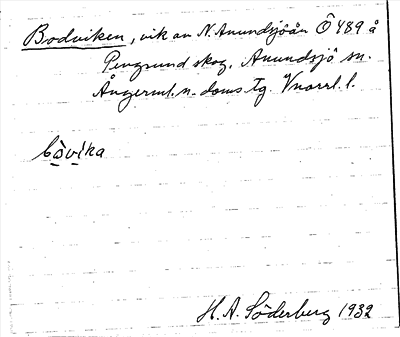 Bodviken, vik av N. Anundsjöån Ö 489 å
Pengsund skog, Anundsjö sn.
Ångerml. n. doms. tg. Vnorrl. l.
bòvika
H. A. Söderberg 1932